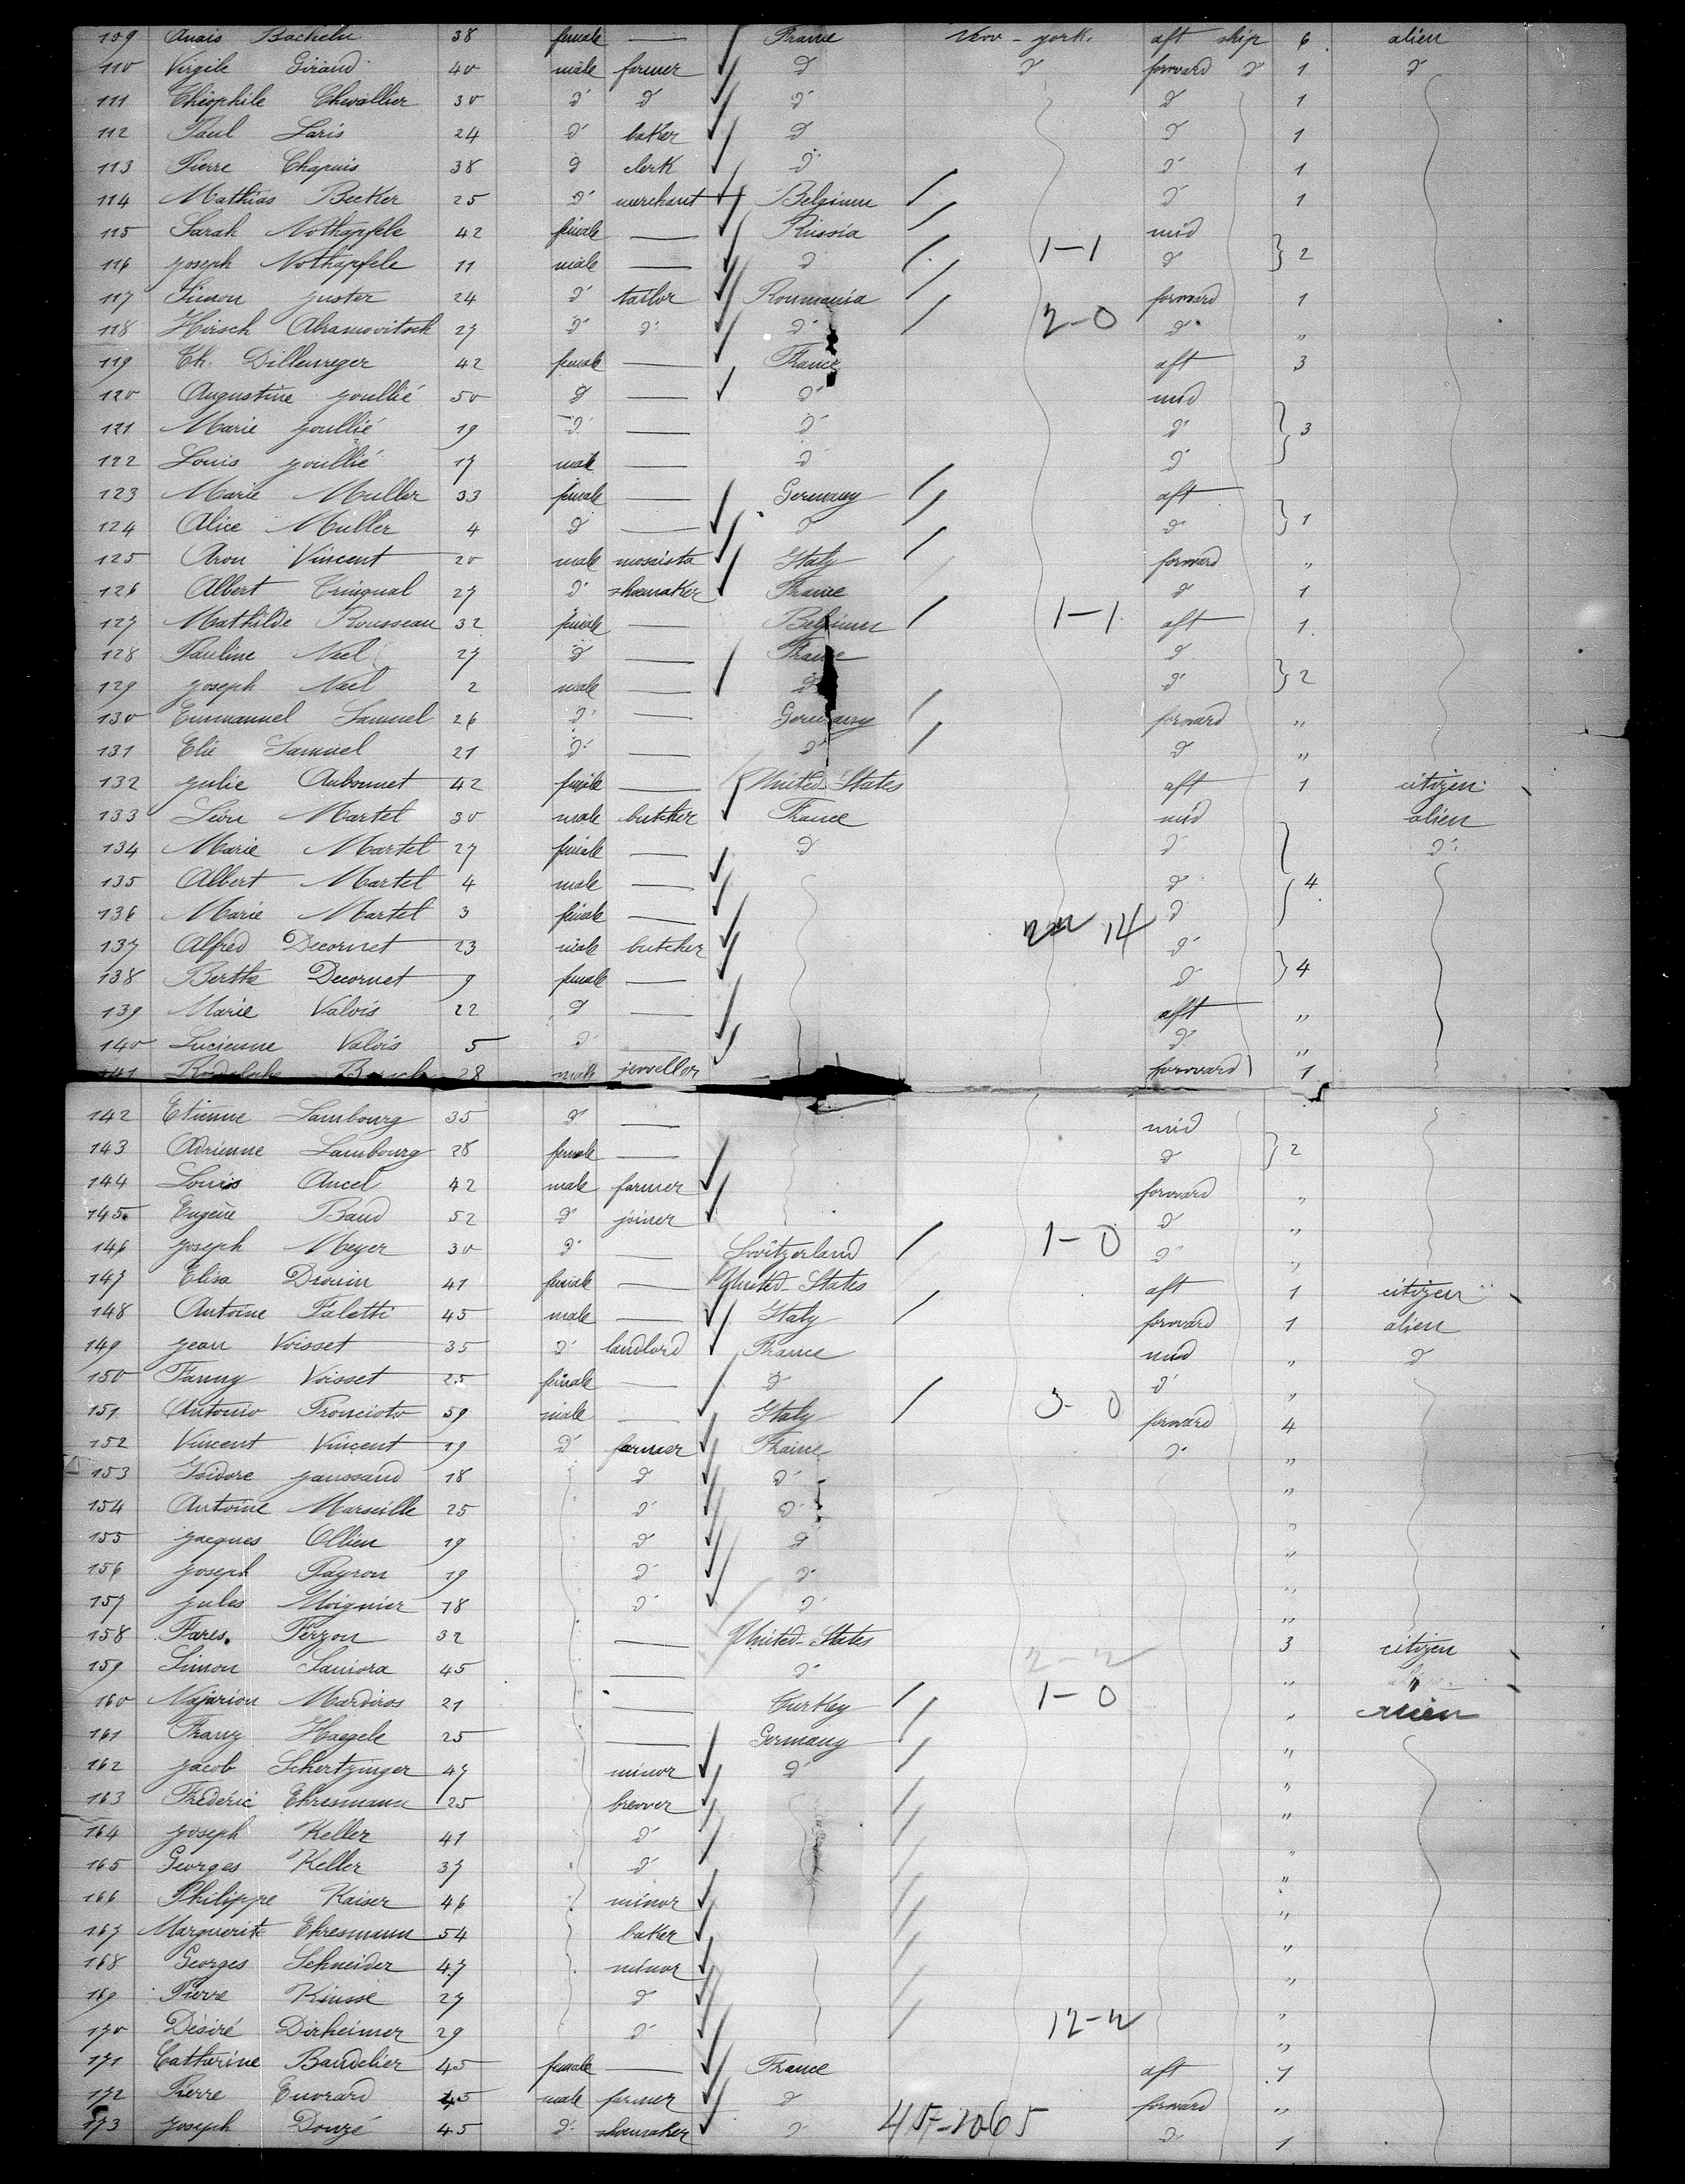 109 Anais Bachelu 38 female — France New-york. aft ship 6 alien
110 Virgile Giraud 40 male farmer d° d° forward d° 1 d°
111 Théophile Chevallier 30 d° d° d° d° 1
112 Paul Laris 24 d° baker d° d° 1
113 Pierre Chapuis 38 d° clerk d° d° 1
114 Mathias Becker 25 d° merchant Belgium d° 1
115 Sarah Nothapfele 42 female — Russia mid
116 Joseph Nothapfele 11 male — d° 1-1 d° } 2
117 Simon Juster 24 d° tailor Roumania forward 1
118 Hirsch Abramovitsch 27 d° d° d° 2-0 d° "
119 Ch. Dillenseger 42 female — France aft 3
120 Augustine Joullié 50 d° — d° mid
121 Marie Joullié 19 d° — d° d° } 3
122 Louis Joullié 17 male — d° d°
123 Marie Muller 33 female — Germany aft
124 Alice Muller 4 d° — d° d° } 1
125 Aron Vincent 20 male mosaista Italy forward "
126 Albert Cuinqual 27 d° shoemaker France d° 1
127 Mathilde Rousseau 32 female — Belgium 1-1 aft 1
128 Pauline Nael 27 d° — France d°
129 Joseph Nael 2 male d° d° } 2
130 Emmanuel Samuel 26 d° — Germany forward "
131 Elie Samuel 21 d° — d° d° "
132 Julie Aubonnet 42 female — United-States aft 1 citizen
133 Léon Martel 30 male butcher France mid alien
134 Marie Martel 27 female — d° d° d°
135 Albert Martel 4 male — d° } 4
136 Marie Martel 3 female — d°
137 Alfred Decornet 23 male butcher 14 d°
138 Berthe Decornet 9 female — d° } 4
139 Marie Valois 22 d° — aft "
140 Lucienne Valois 5 d° — d° "
141 28 male jeweller forward 1
142 Etienne Lambourg 35 d° — mid
143 Adrienne Lambourg 28 female — d° } 2
144 Louis Ancel 42 male farmer forward "
145 Eugène Baud 52 d° joiner d° "
146 Joseph Meyer 30 d° — Switzerland 1-0 d° "
147 Elisa Drouin 41 female — United-States aft 1 citizen
148 Antoine Faletti 45 male — Italy forward 1 alien
149 Jean Voisset 35 d° landlord France mid " d°
150 Fanny Voisset 25 female — d° d° "
151 Antonio Troncioto 59 male — Italy 3-0 forward 4
152 Vincent Vincent 19 d° farmer France d° "
153 Isidore Jaussaud 18 d° d° "
154 Antoine Marseille 25 d° d° "
155 Jacques Ollien 19 d° d° "
156 Joseph Payron 19 d° d° "
157 Jules Moignier 18 d° d° "
158 Fares Ferzon 32 — United-States 3 citizen
159 Simon Samora 45 — d° 2-2 "
160 Najarian Mardiros 21 — Turkey 1-0 " alien
161 Franz Haegele 25 — Germany "
162 Jacob Schertzinger 47 minor d° "
163 Frédéric Ehresmann 25 brewer "
164 Joseph Keller 41 d° "
165 Georges Keller 37 d° "
166 Philippe Kaiser 46 minor "
167 Marguerite Ehresmann 54 baker "
168 Georges Schneider 47 minor "
169 Pierre Kinsse 27 d° "
170 Désiré Dirheimer 29 d° 12-2 "
171 Catherine Baudelier 45 female — France aft 1
172 Pierre Euvrard 45 male farmer d° forward "
173 Joseph Douzé 45 d° shoemaker d° d° 1